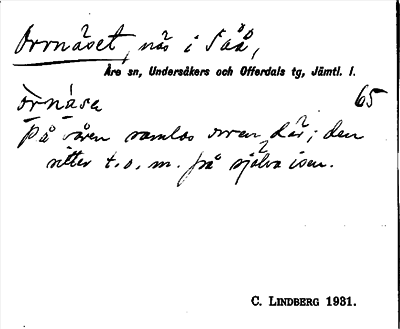 Orrnäset, näs i Tåå,
Åre sn, Undersåkers och Offerdals tg, Jämtl. l.
òrnása 65
På våren samlas orren där; den
sitter t.o.m. på själva isen.
C. LINDBERG 1931.